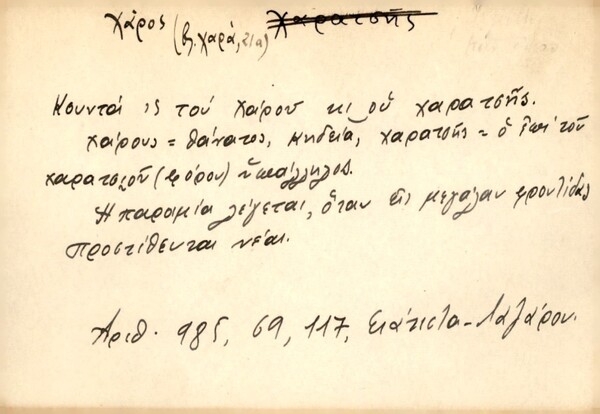 Χάρος (βλ. χαρά, 21α) Χαρατσής
Κοντά 'ς τοῦ Χάρου κι οὑ χαρατσῆς.
Χάρους = θάνατος, κηδεία, χαρατσής = ὁ ἐπὶ τοῦ
χαρατσιοῦ (φόρου) ὑπάλληλος.
Ἡ παροιμία λέγεται, ὅταν εἰς μεγάλαν φροντίδας
προστίθενται νέαι.
Ἀριθ. 985, 69, 117, Σιάτιστα - Λαζάρου.